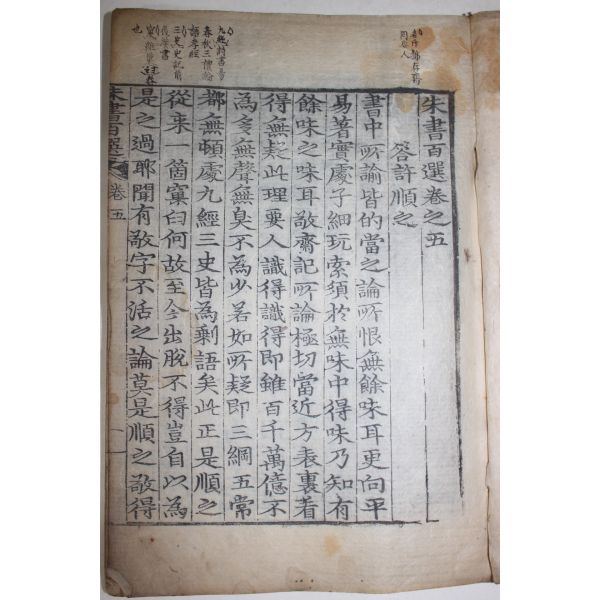 名升號存齋
同安人
九經詩書易
春秋三禮論
語孝經
三史史記前
後漢書
也
朱書百選卷之五
答許順之
書中所諭皆的當之論所恨無餘味耳更向平
易著實處子細玩索須於無味中得味乃知有
餘味之味耳敬齋記所論極切當近方表裏看
得無疑此理要人識得識得即雖百千萬億不
為多無聲無臭不為少若如所疑即三綱五常
都無頓處九經三史皆為剩語矣此正是順之
從来一箇窠臼何故至今出脫不得豈自以為
是之過耶聞有敬字不活之論莫是順之敬得
朱書百選 卷五 一